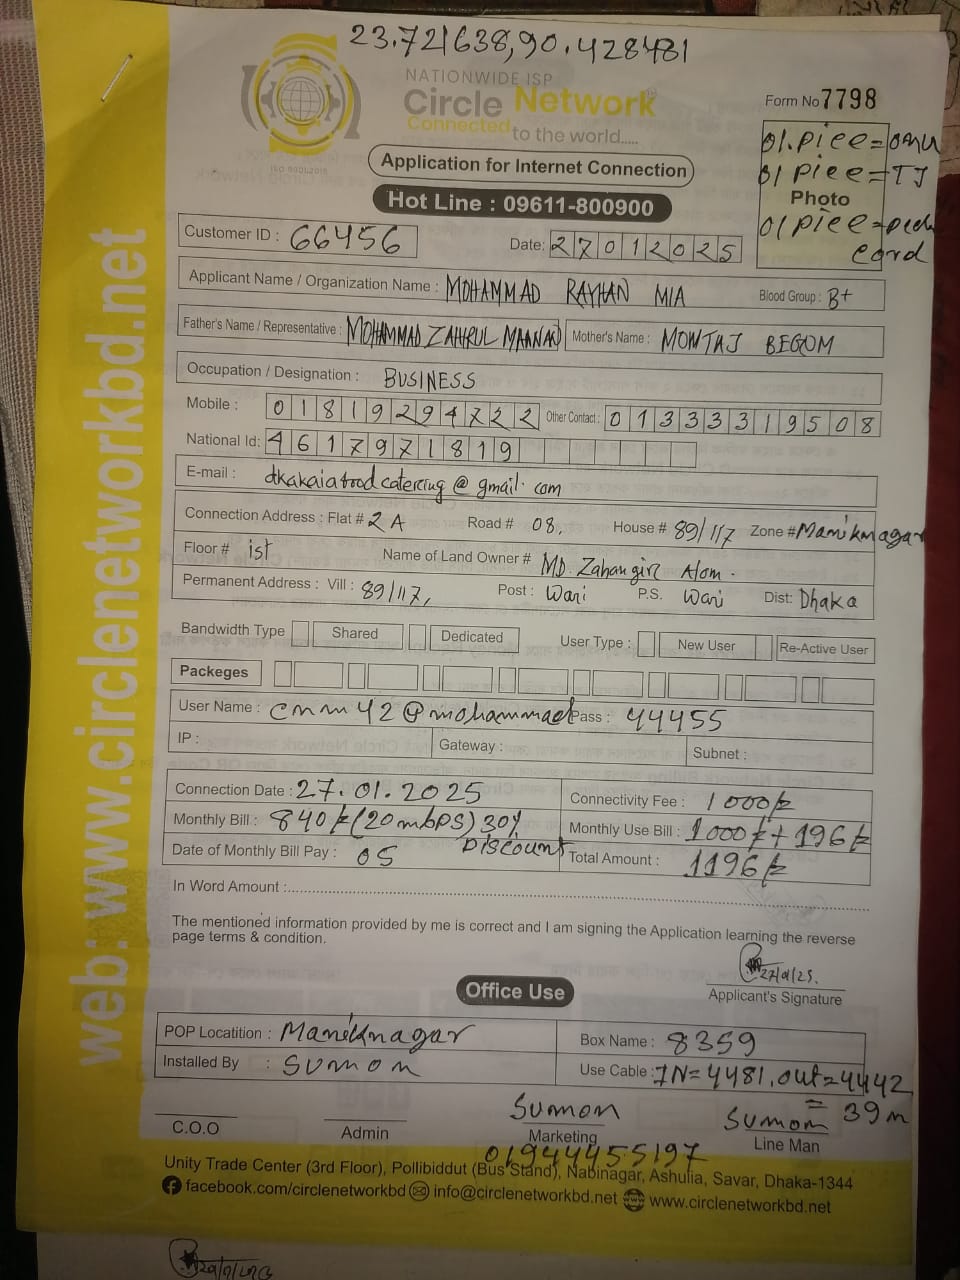 23.721638,90.428481
NATIONWIDE ISP
Circle Network
Connected to the world.....
ISO 9001:2015
Form No 7798
Application for Internet Connection
Hot Line : 09611-800900
01.piee=onu
01 piee=TJ
Photo
01 piee=
card
Customer ID : 66456
Date: 27012025
Applicant Name / Organization Name : MOHAMMAD RAYHAN MIA Blood Group : B+
Father's Name / Representative : MOHAMMAD ZAHIRUL Mother's Name : MOWTAJ BEGOM
Occupation / Designation : BUSINESS
Mobile : 01819294722 Other Contact : 01333319508
National Id: 4617971819
E-mail : dkakaiafoodcatering@gmail.com
Connection Address : Flat # 2A Road # 08, House # 89/117 Zone # Maniknagar
Floor # ist Name of Land Owner # MD. Zahangir Alom.
Permanent Address : Vill : 89/117, Post : Wari P.S. Wari Dist: Dhaka
Bandwidth Type Shared Dedicated User Type : New User Re-Active User
Packeges
User Name : cmm42@mohammad Pass : 44455
IP : Gateway : Subnet :
Connection Date : 27.01.2025 Connectivity Fee : 1000/=
Monthly Bill : 840/=(20mbps) 30% Discount Monthly Use Bill : 1000/= + 196/=
Date of Monthly Bill Pay : 05 Total Amount : 1196/=
In Word Amount :
The mentioned information provided by me is correct and I am signing the Application learning the reverse
page terms & condition.
27/01/25.
Applicant's Signature
Office Use
POP Locatition : Maniknagar Box Name : 8359
Installed By : Sumon Use Cable : IN=4481, out=4442
= 39m
Sumon Sumon
C.O.O Admin Marketing Line Man
01944455197
Unity Trade Center (3rd Floor), Pollibiddut (Bus Stand), Nabinagar, Ashulia, Savar, Dhaka-1344
facebook.com/circlenetworkbd info@circlenetworkbd.net www.circlenetworkbd.net
web: www.circlenetworkbd.net